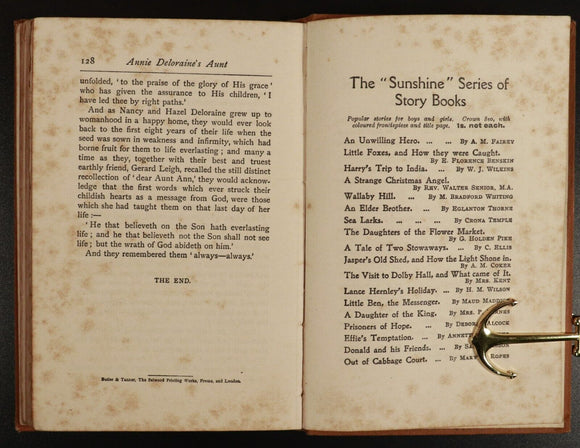 128 Annie Deloraine's Aunt
unfolded, 'to the praise of the glory of His grace'
who has given the assurance to His children, 'I
have led thee by right paths.'
And as Nancy and Hazel Deloraine grew up to
womanhood in a happy home, they would ever look
back to the first eight years of their life when the
seed was sown in weakness and infirmity, which had
borne fruit for them to life everlasting; and many a
time as they, together with their best and truest
earthly friend, Gerard Leigh, recalled the still distinct
recollection of 'dear Aunt Ann,' they would acknow-
ledge that the first words which ever struck their
childish hearts as a message from God, were those
which she had taught them on that last day of her
life:—
'He that believeth on the Son hath everlasting
life; and he that believeth not the Son shall not see
life; but the wrath of God abideth on him.'
And they remembered them 'always—always.'
THE END.
Butler & Tanner, The Selwood Printing Works, Frome, and London.
The "Sunshine" Series of
Story Books
Popular stories for boys and girls. Crown 8vo, with
coloured frontispiece and title page. 1s. net each.
An Unwilling Hero. ... By A. M. FAIREY
Little Foxes, and How they were Caught.
By E. FLORENCE BENSKIN
Harry's Trip to India. ... By W. J. WILKINS
A Strange Christmas Angel.
By REV. WALTER SENIOR, M.A.
Wallaby Hill. ... By M. BRADFORD WHITING
An Elder Brother. ... By EGLANTON THORNE
Sea Larks. ... ... By CRONA TEMPLE
The Daughters of the Flower Market.
By G. HOLDEN PIKE
A Tale of Two Stowaways. ... By C. ELLIS
Jasper's Old Shed, and How the Light Shone in.
By A. M. COKER
The Visit to Dolby Hall, and What came of It.
By MRS. KENT
Lance Hernley's Holiday. ... By H. M. WILSON
Little Ben, the Messenger. By MAUD
A Daughter of the King. By MRS.
Prisoners of Hope. ... By
Effie's Temptation. ... By
Donald and his Friends. ... By
Out of Cabbage Court. ... By